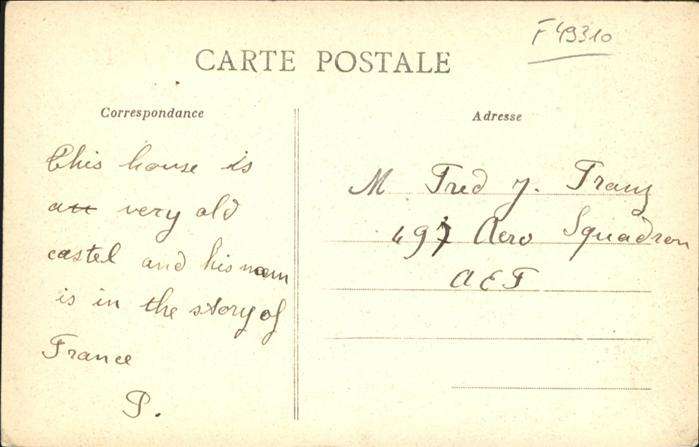 F49310
CARTE POSTALE
Correspondance
Adresse
This house is
a very old
castel and his nam
is in the story of
France
P.
M Fred J. Franz
497 Aero Squadron
AEF